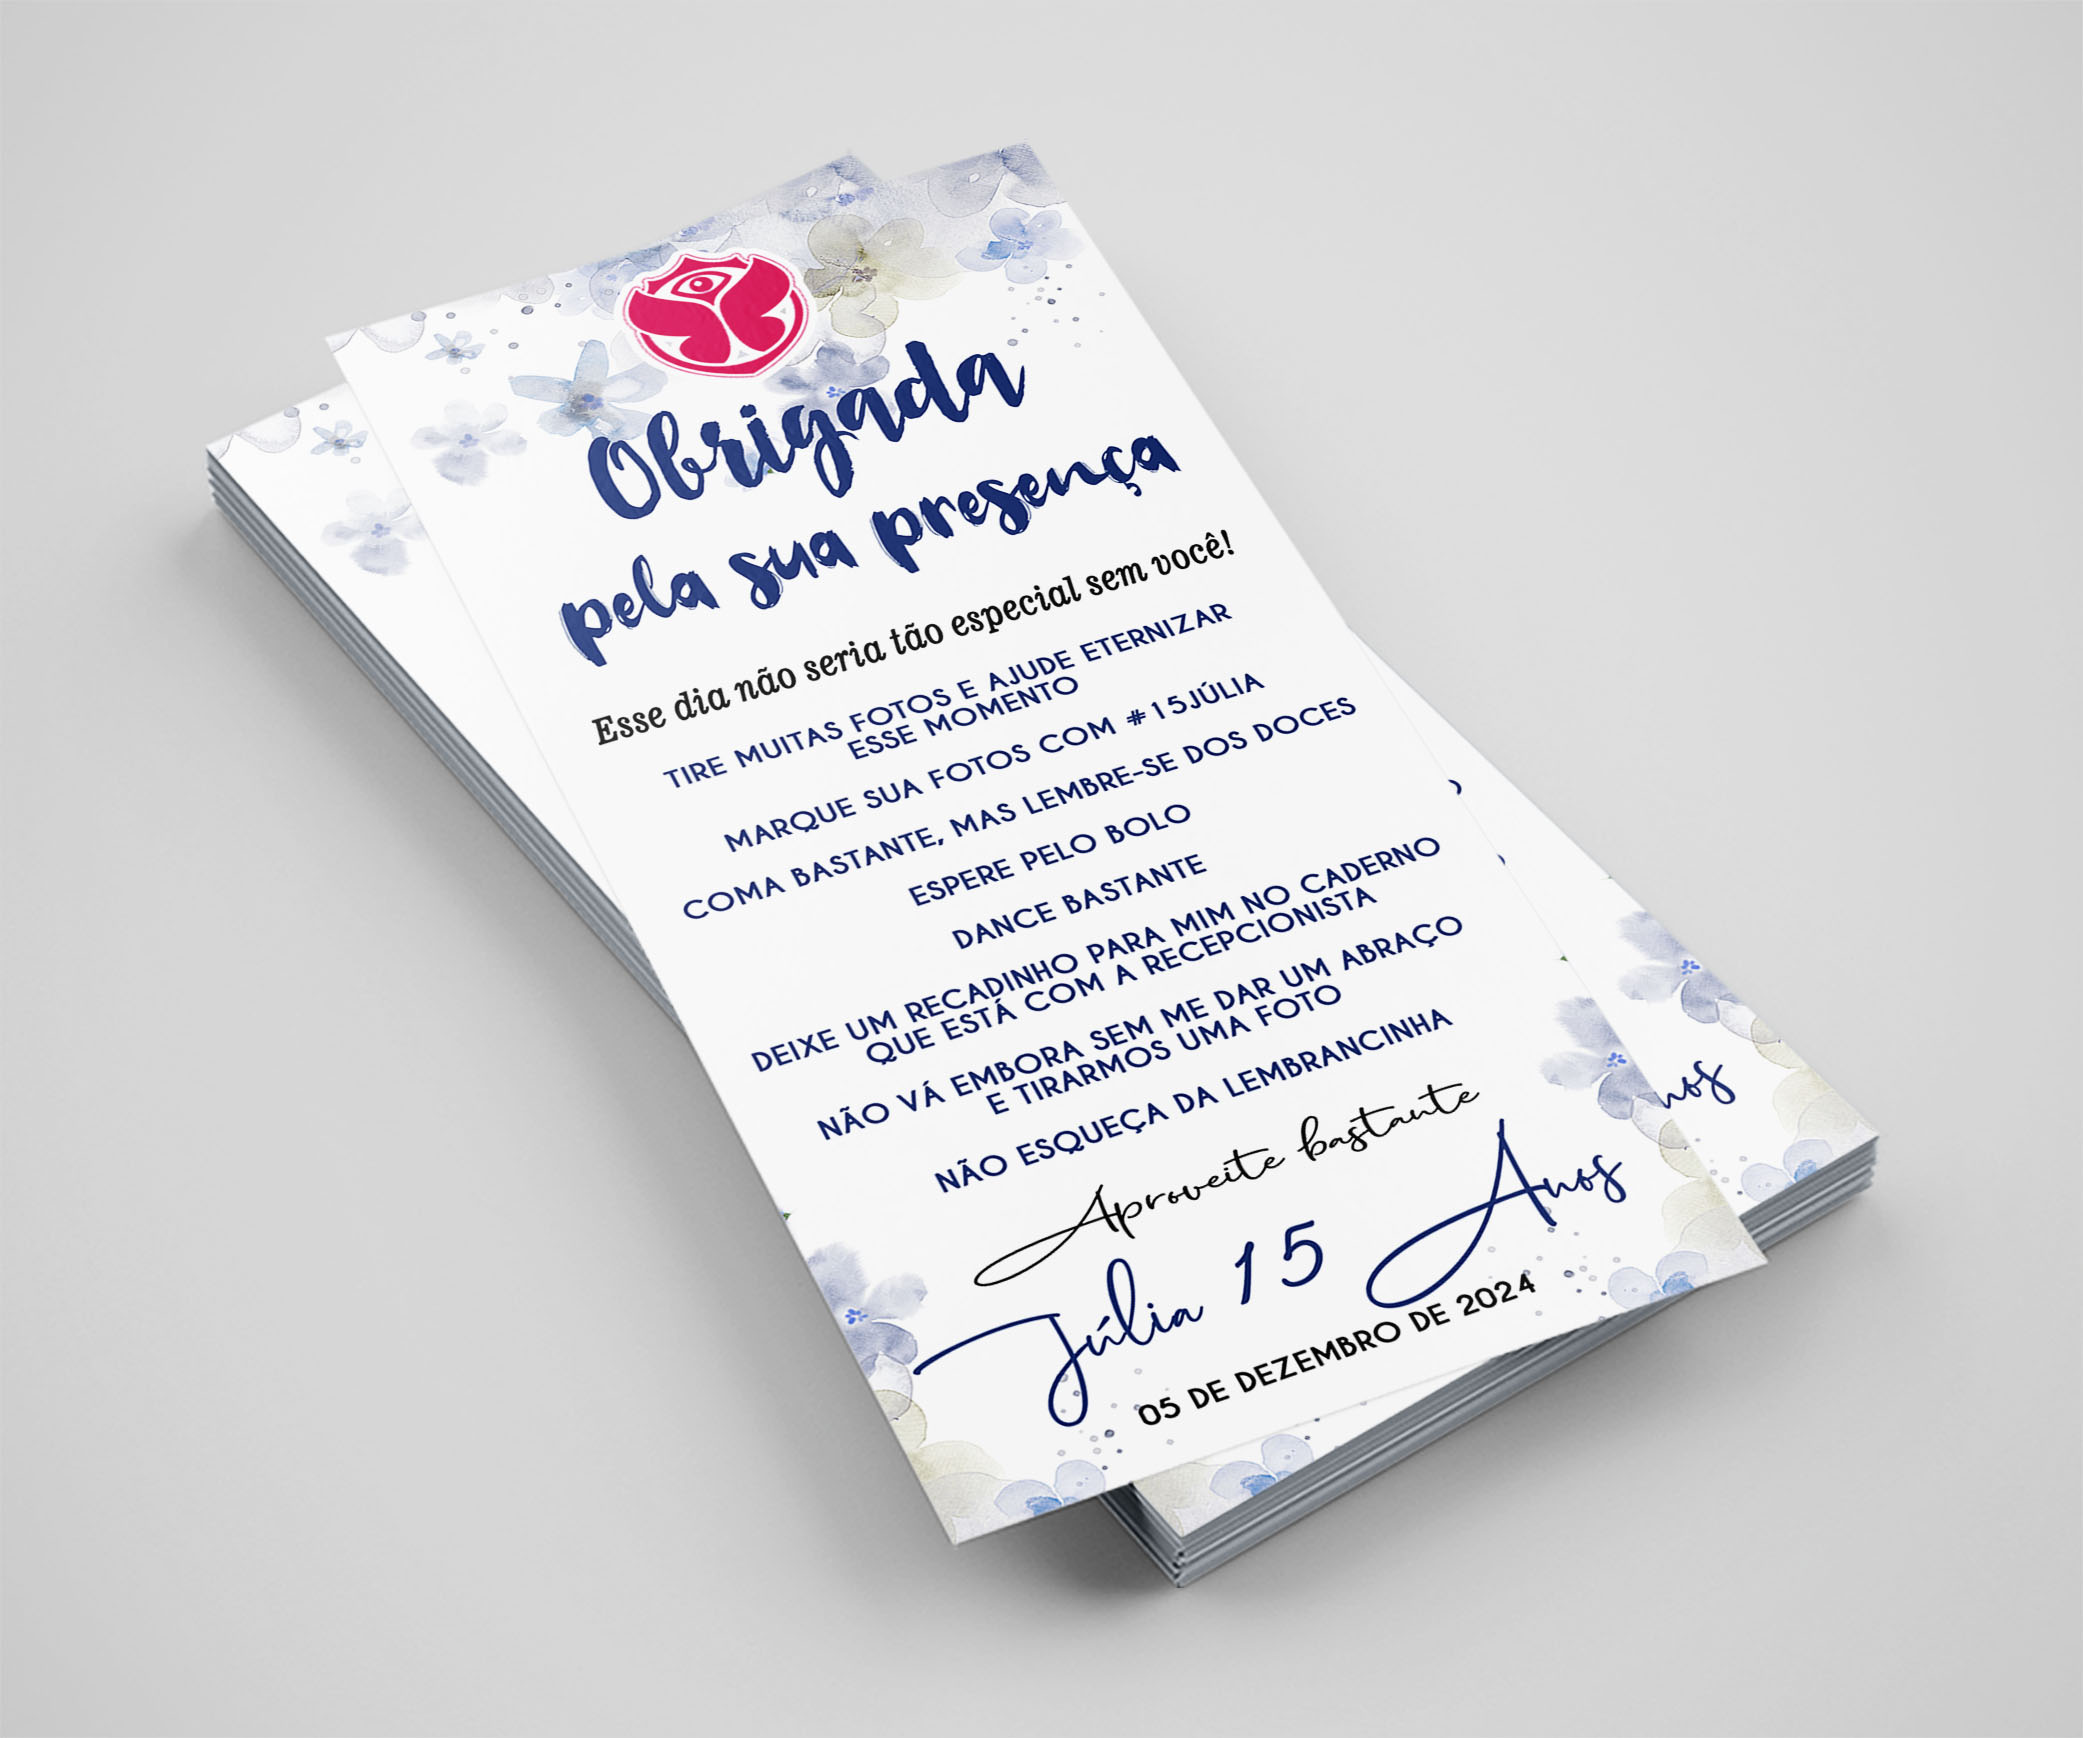 Obrigada
pela sua presença
Esse dia não seria tão especial sem você!
TIRE MUITAS FOTOS E AJUDE ETERNIZAR
ESSE MOMENTO
MARQUE SUA FOTOS COM #15JÚLIA
COMA BASTANTE, MAS LEMBRE-SE DOS DOCES
ESPERE PELO BOLO
DANCE BASTANTE
DEIXE UM RECADINHO PARA MIM NO CADERNO
QUE ESTÁ COM A RECEPCIONISTA
NÃO VÁ EMBORA SEM ME DAR UM ABRAÇO
E TIRARMOS UMA FOTO
NÃO ESQUEÇA DA LEMBRANCINHA
Aproveite bastante
Júlia 15 Anos
05 DE DEZEMBRO DE 2024
nos